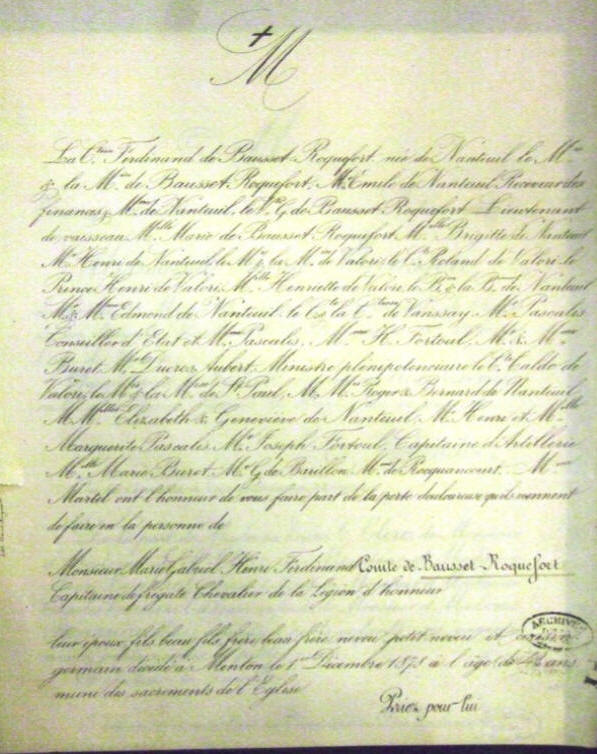 M
La C.tesse Ferdinand de Bausset-Roquefort, née de Nanteuil le M.is
& la M.ise de Bausset-Roquefort, M.r Emile de Nanteuil Receveur des
finances & M.me de Nanteuil, le V.te G. de Bausset Roquefort Lieutenant
de vaisseau M.elle Marie de Bausset-Roquefort, M.elle Brigitte de Nanteuil
M.r Henri de Nanteuil, le M.is & la M.ise de Valori, le C.te Roland de Valori, le
Prince Henri de Valori, M.elle Henriette de Valori, le B.on & la B.nne de Nanteuil
M.r & M.me Edmond de Nanteuil, le C.te & la C.tesse de Vanssay, M.r Pascalis
Conseiller d'Etat et M.me Pascalis, M.me H. Fortoul, M.r & M.me
Buret M.r Ducros Aubert, Ministre plénipotenciaire le C.te Caldo de
Valori, le M.is & la M.ise de S.t Paul, M.M.rs Roger & Bernard de Nanteuil
M.M.elles Elizabeth & Geneviève de Nanteuil, M.r Henri et M.elle
Marguerite Pascalis M.r Joseph Fortoul, Capitaine d'Artillerie
M.elle Marie Buret M.r G. de Barillon M.me de Rocquancourt, M.me
Martel ont l'honneur de vous faire part de la perte douloureuse qu'ils viennent
de faire en la personne de
Monsieur Marie Gabriel Henri Ferdinand Comte de Bausset-Roquefort
Capitaine de frégate Chevalier de la Légion d'honneur
leur époux fils beau fils frère beau frère neveu petit neveu et cousin
germain décédé à Menton le 1.er Décembre 1878 à l'âge de ans
muni des sacrements de l'Eglise
Priez pour lui
ARCHIVES